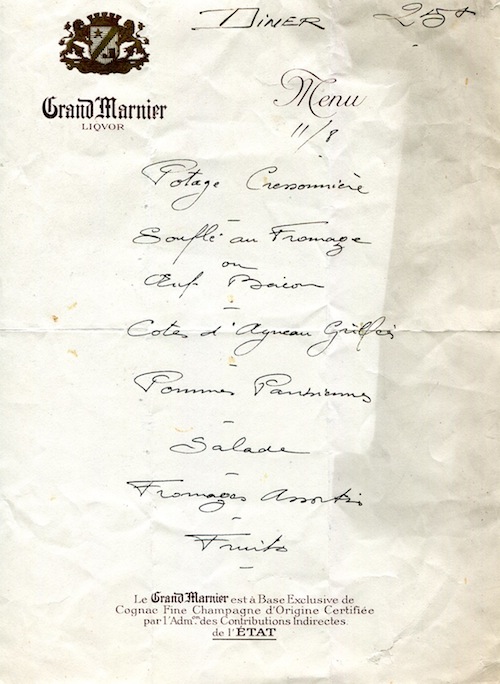 DINER
Grand Marnier
LIQVOR
Menu
11/8
Potage Cressonnière
Souflé au Fromage
ou
Œuf Bacon
Cotes d'Agneau Grillées
Pommes Parisiennes
Salade
Fromages Assortis
Fruits
Le Grand Marnier est à Base Exclusive de
Cognac Fine Champagne d'Origine Certifiée
par l'Adm.on des Contributions Indirectes.
de l'ÉTAT